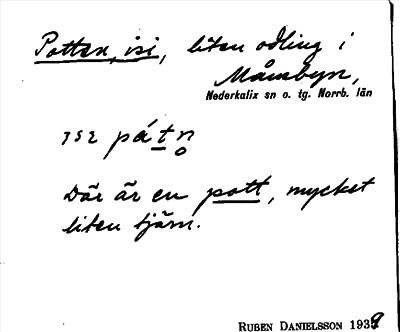 Potten, isi, liten odling i
Månsbyn,
Nederkalix sn o. tg. Norrb. län
352 pátn
Där är en pott, mycket
liten tjärn.
RUBEN DANIELSSON 1939